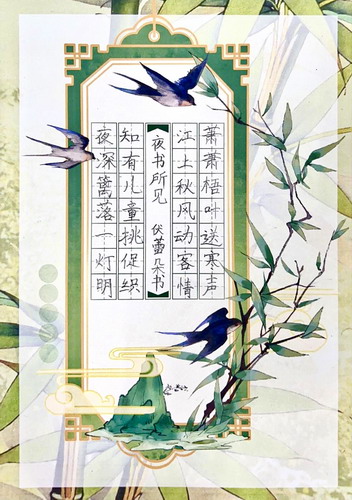 萧萧梧叶送寒声
江上秋风动客情
夜书所见 伏蕾朵书
知有儿童挑促织
夜深篱落一灯明